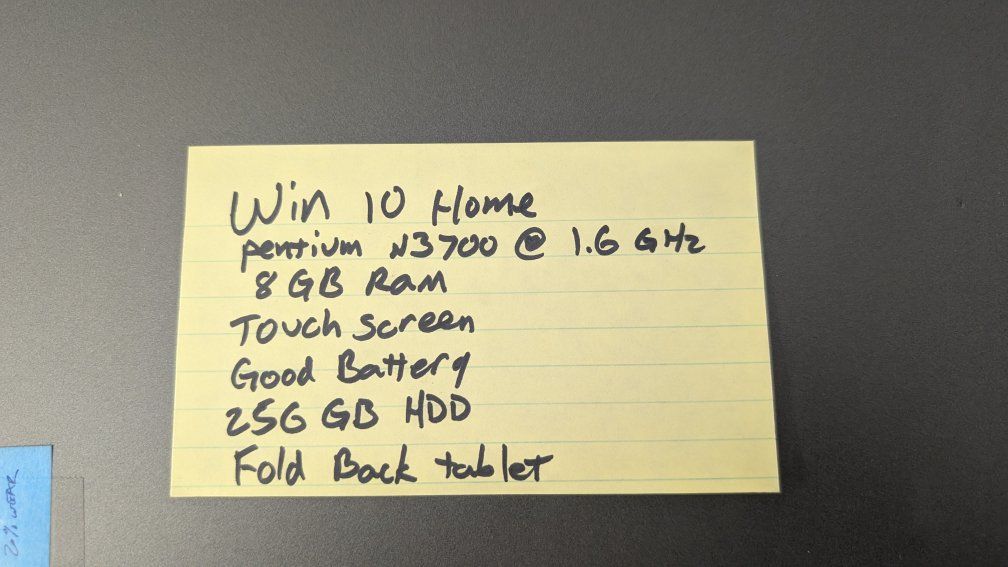 Win 10 Home
Pentium N3700 @ 1.6 GHz
8 GB Ram
Touch Screen
Good Battery
256 GB HDD
Fold Back tablet
20% WEAR